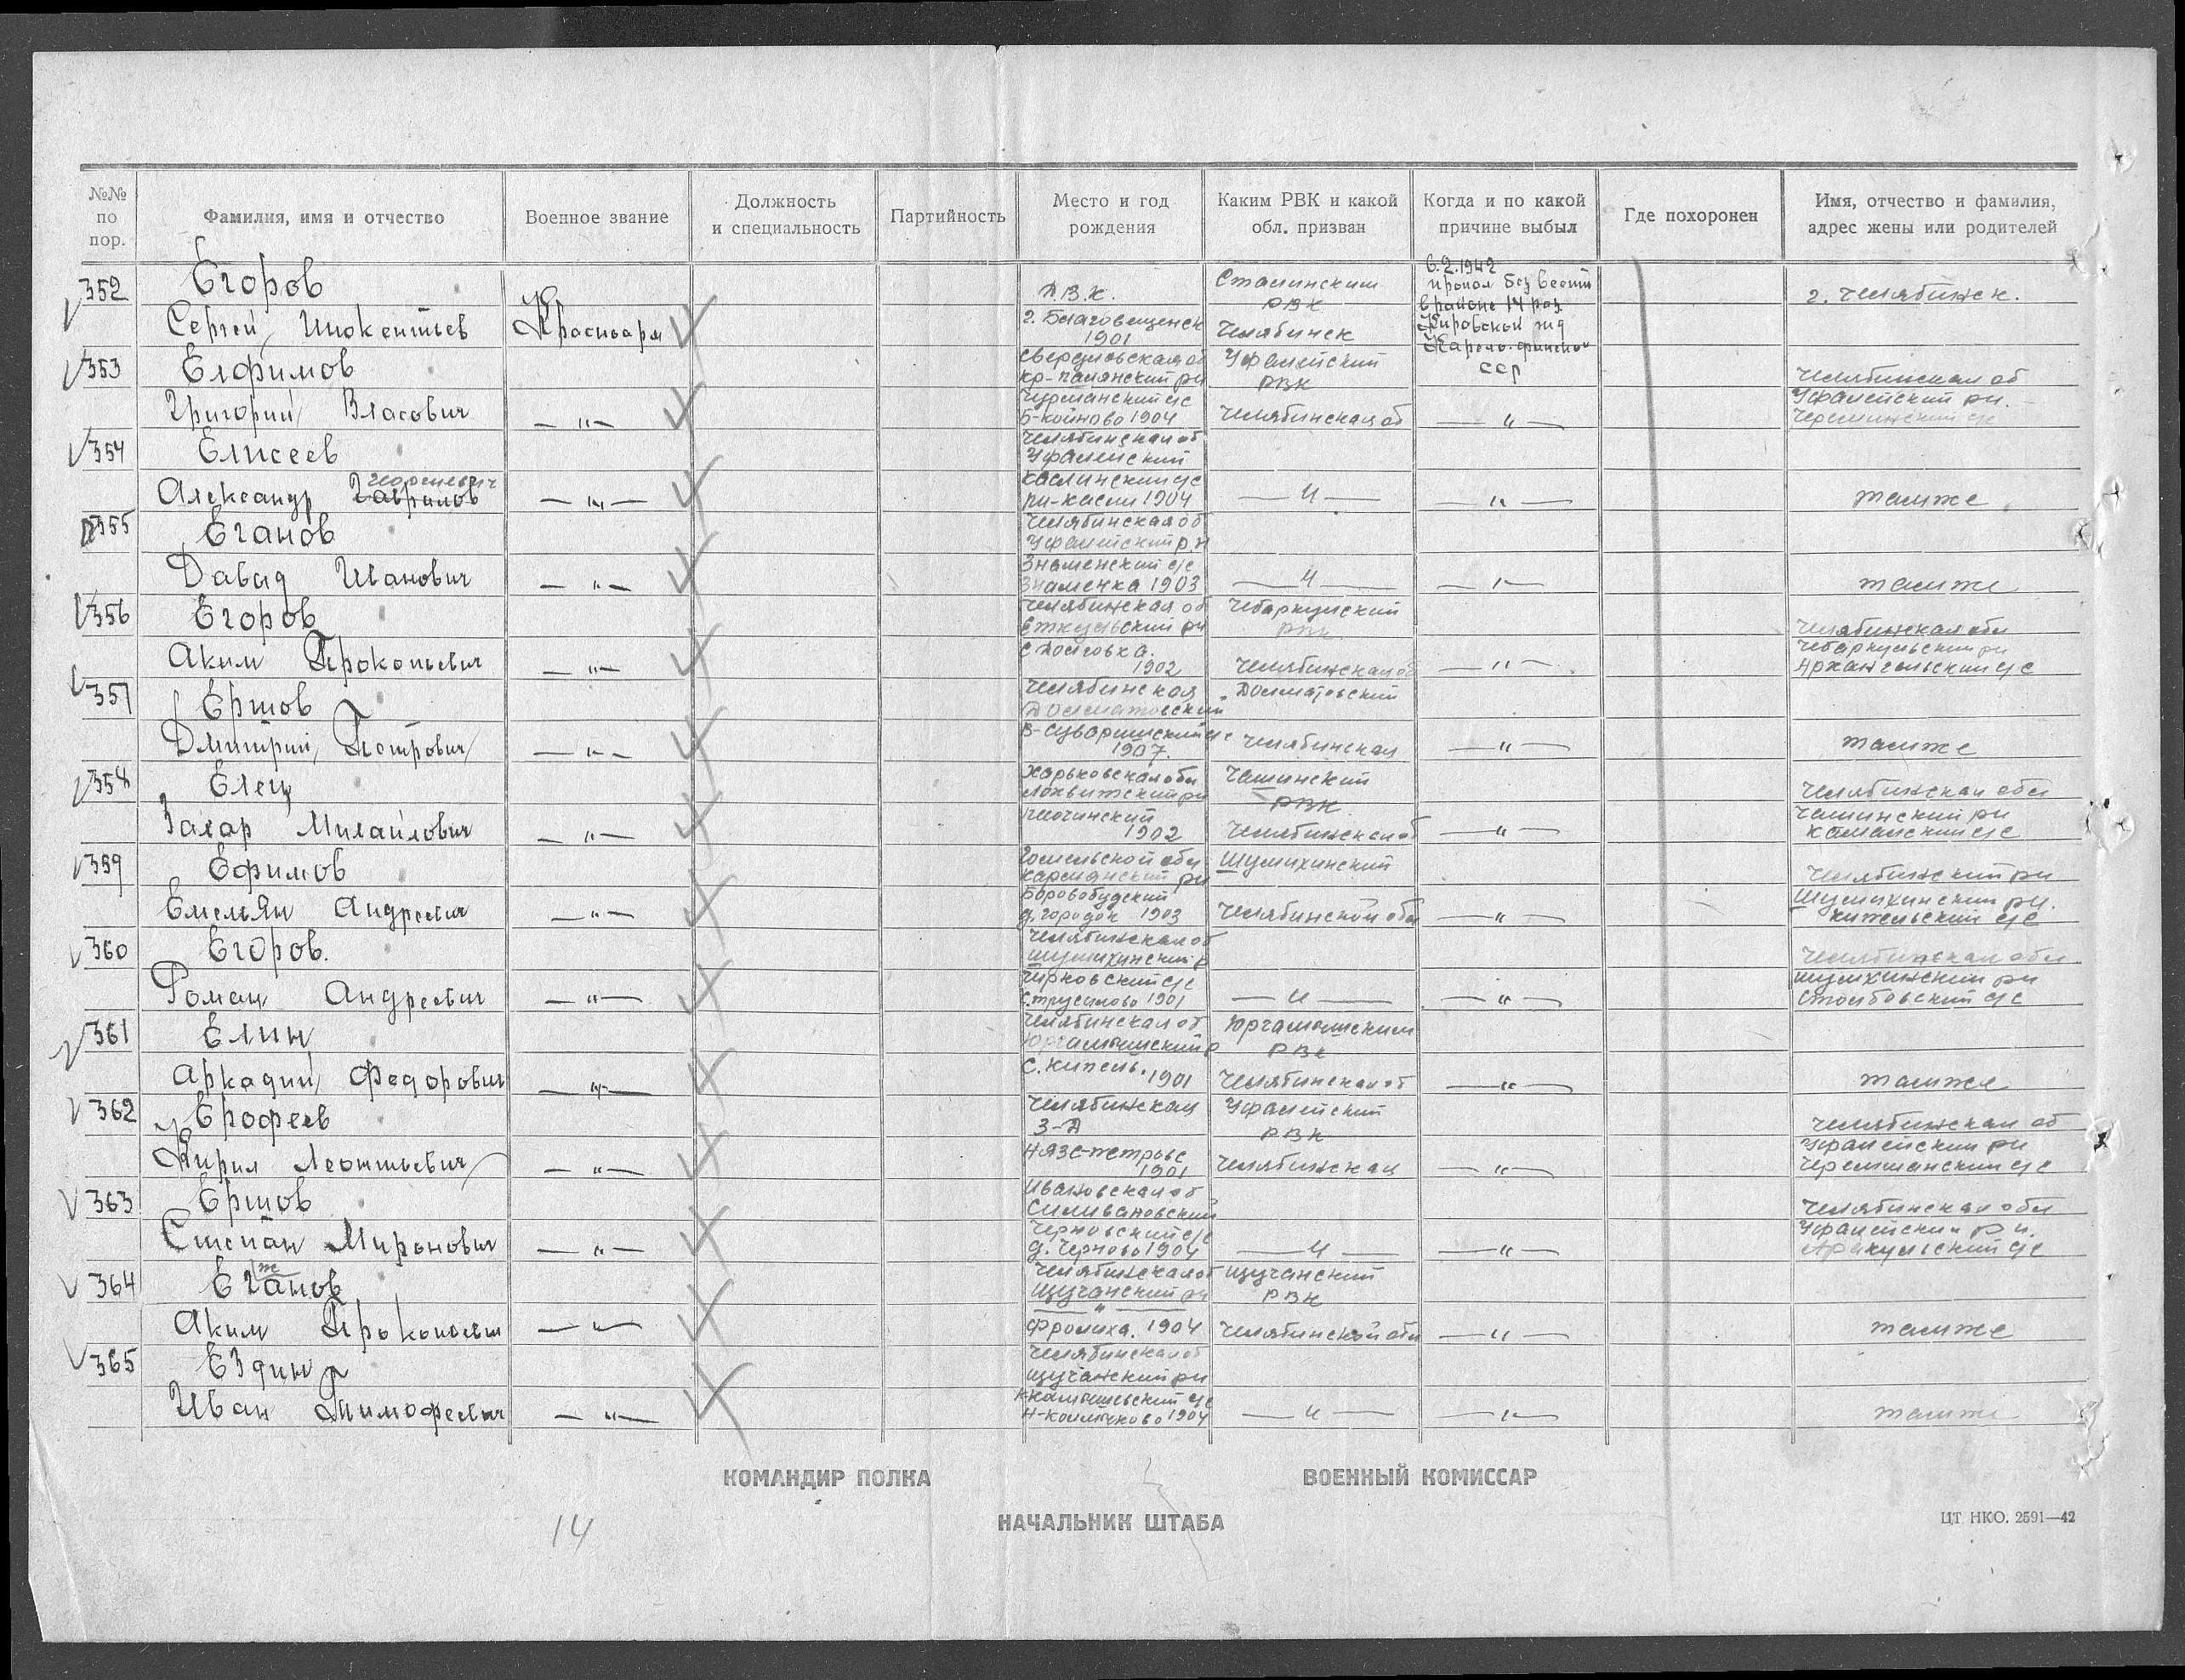 №№ по пор.
Фамилия, имя и отчество
Военное звание
Должность и специальность
Партийность
Место и год рождения
Каким РВК и какой обл. призван
Когда и по какой причине выбыл
Где похоронен
Имя, отчество и фамилия, адрес жены или родителей
352
Егоров
Сергей Инокентьев
Красноарм
Д.В.К.
г. Благовещенск
1901
Сталинским
РВК
Челябинск
6.2.1942
пропал без вести
в районе 14 раз
Кировской жд
Карело-финской
ССР
г. Челябинск.
353
Елфимов
Григорий Власович
— " —
Свердловская об
кр-
1904
Уфалейский
РВК
Челябинская об
— " —
Челябинская об
Уфалейский рн.
354
Елисеев
Александр Гаврилов
— " —
Челябинская об
Уфалейский
Каслинский с/с
рн-касли 1904
— " —
— " —
тамже
355
Еганов
Давид Иванович
— " —
Челябинская об
Уфалейский рн
Знаменский с/с
Знаменка 1903
— " —
— " —
тамже
356
Егоров
Аким Прокопьевич
— " —
Челябинская об
Еткульский рн
1902
Чебаркульский
РВК
Челябинская об
— " —
Челябинская обл
Чебаркульский рн
Архангельский с/с
357
Ершов
Дмитрий Петрович
— " —
Челябинская
Долматовский
1907.
Долматовский
Челябинская
— " —
тамже
358
Елец
Захар Михайлович
— " —
Харьковская обл
Лохвитский рн
1902
Чашинский
РВК
Челябинская об
— " —
Челябинская обл
Чашинский рн
359
Ефимов
Емельян Андреевич
— " —
Гомельской обл
д. городок 1903
Шумихинский
Челябинской обл
— " —
Челябинский рн
Шумихинский рн.
360
Егоров.
Роман Андреевич
— " —
Челябинская об
Шумихинский р
1901
— " —
— " —
Челябинская обл
Шумихинский рн
Столбовский с/с
361
Елин
Аркадий Федорович
— " —
Челябинская об
Юргамышский р
с. Кипель. 1901
Юргамышским
РВК
Челябинская об
— " —
тамже
362
Ерофеев
Кирил Леонтьевич
— " —
Челябинская
З-д
Нязе-петровс
1901
Уфалейский
РВК
Челябинская
— " —
Челябинская об
Уфалейский рн
Черемшанский с/с
363
Ершов
Степан Миронович
— " —
Ивановская об
Селивановский
Черновский с/с
д. Черново 1904
— " —
— " —
Челябинская обл
Уфалейский рн.
Аракульский с/с
364
Еганов
ж
Аким Прокопьевич
— " —
Челябинская об
Щучанский рн
— " —
Фролиха. 1904
Щучанский
РВК
Челябинской обл
— " —
тамже
365
Ездин
Иван Тимофеевич
— " —
Челябинская об
Щучанский рн
1904
— " —
— " —
тамже
КОМАНДИР ПОЛКА
ВОЕННЫЙ КОМИССАР
НАЧАЛЬНИК ШТАБА
14
ЦТ НКО. 2591—42